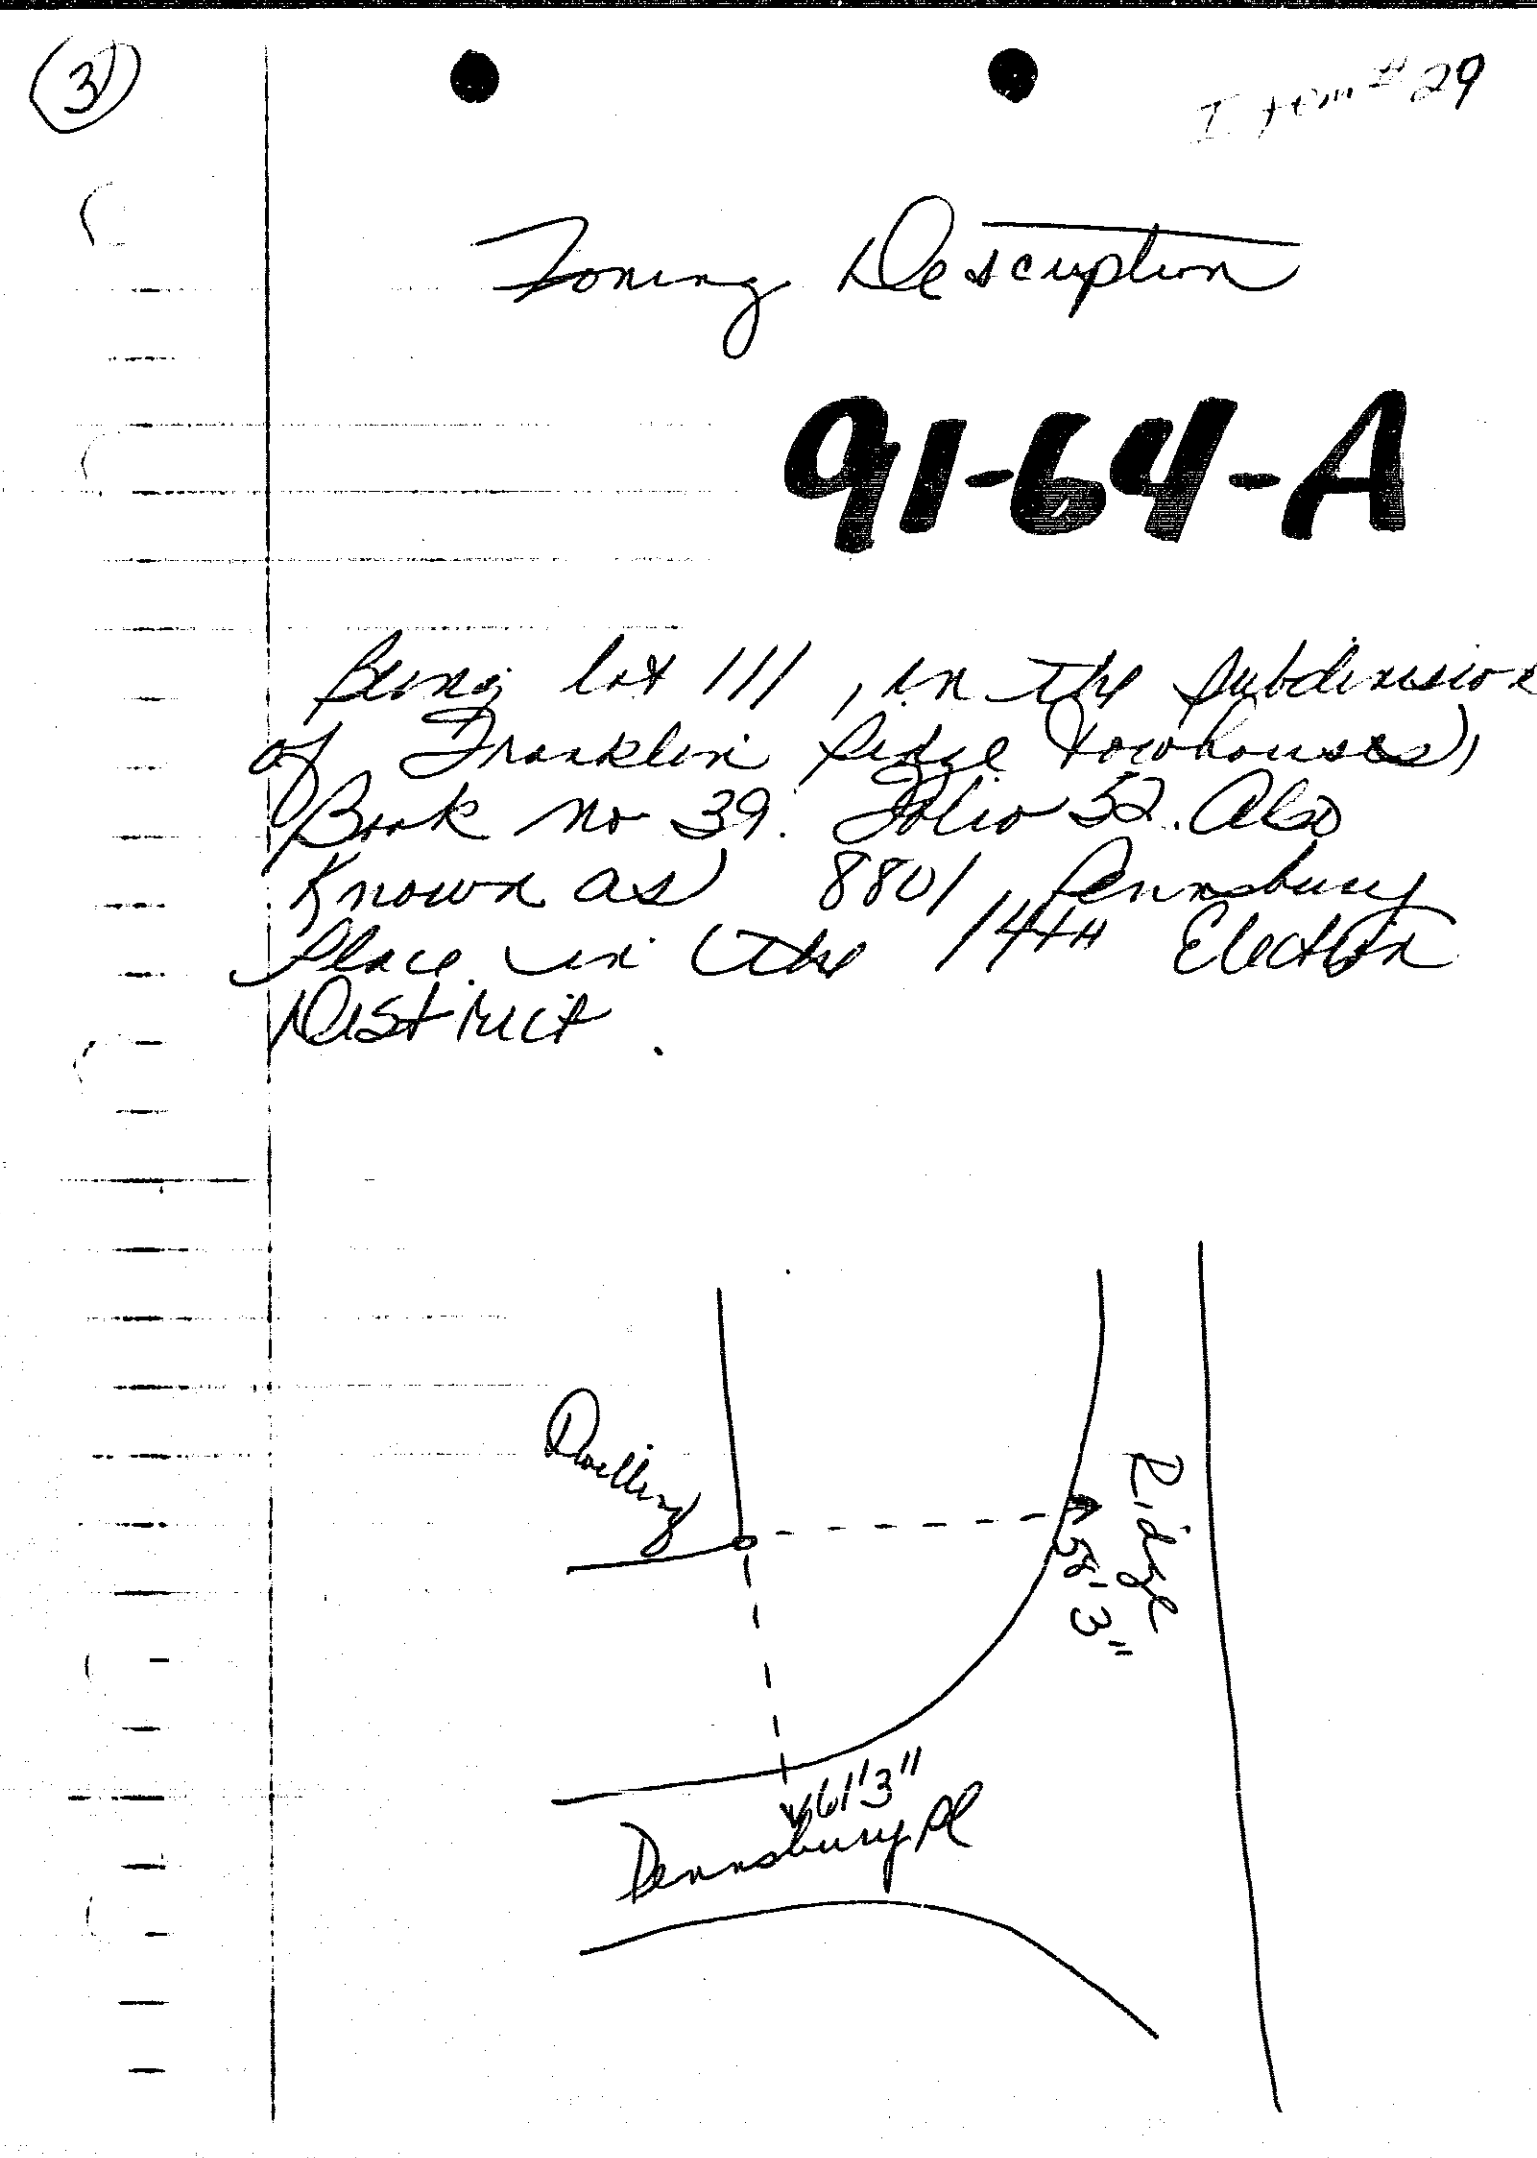 3
Item # 29
Zoning Description
91-64-A
Being lot 111, in the subdivision
of Franklin Ridge Townhouses,
Book no 39. Folio 52. Also
Known as 8801 Pennsbury
Place in the 14th Election
District.
Dwelling
Ridge
58'3"
61'3"
Pennsbury Pl